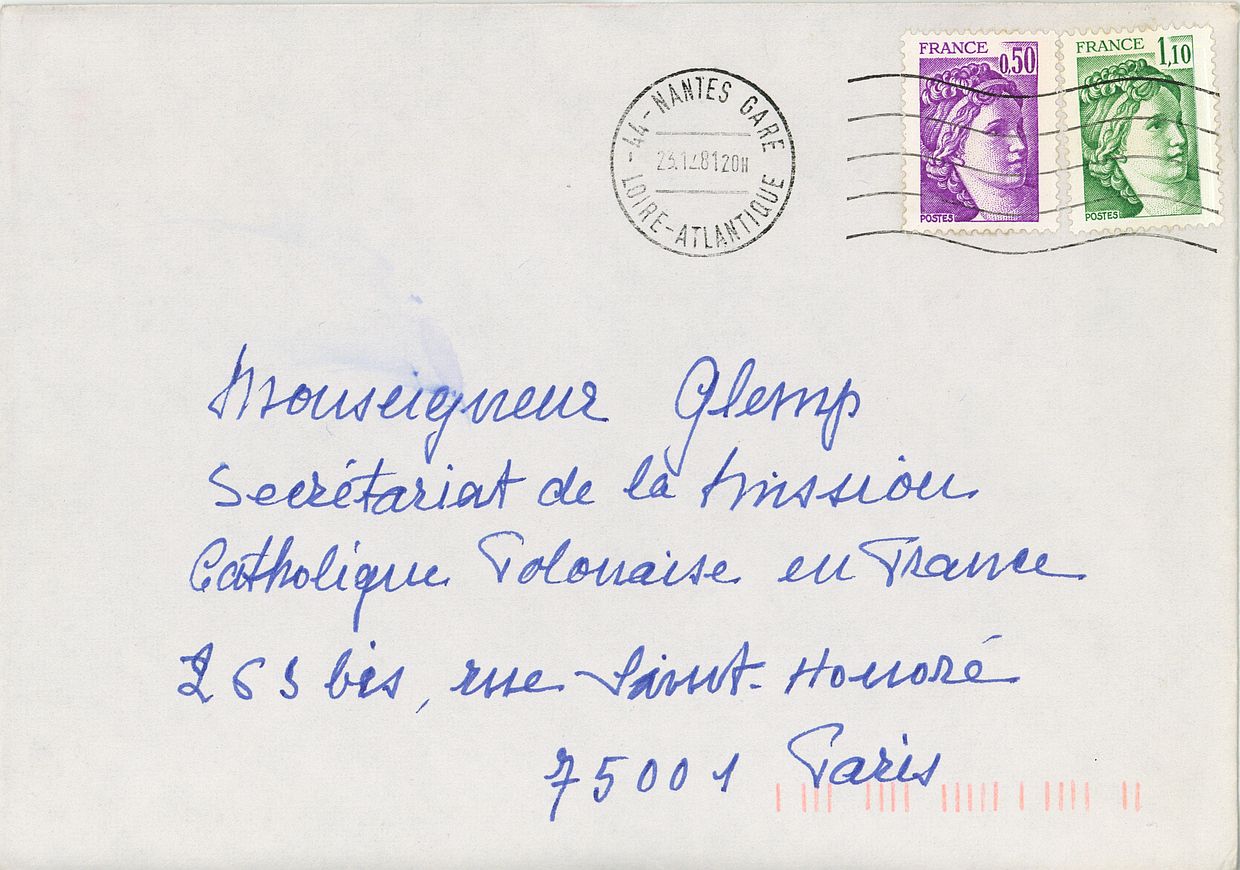 FRANCE 0,50
POSTES
FRANCE 1,10
POSTES
44-NANTES GARE
23.12.81 20H
LOIRE-ATLANTIQUE
Monseigneur Glemp
Secrétariat de la Mission
Catholique Polonaise en France
263 bis, rue Saint-Honoré
75001 Paris